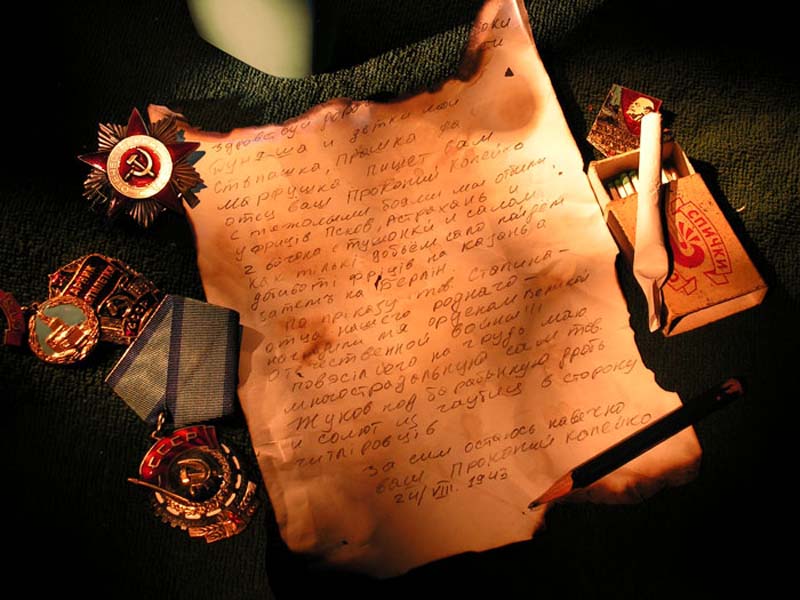 здравствуй
Дуняша и детки мои
Стьпашка, Прошка да
Марфушка. Пишет вам
отец ваш Прокопий Копейко
с тяжолыми боями мы отбили
у фрицiв Псков, Астрахань и
2 бочки с тушонки и салом.
как тiлькi добьём сало пойдём
фрiцiв на казань а
затемъ на Берлiн.
По прiказу тов. Сталина –
отца нашего родного –
орденом Великой
Отчественной войны!!!
повэсiл его на грудь маю
многострадальную сам тов.
Жуков под барабанную дробь
и солют из гаубиц в сторону
гитлiровцiв
За сим остаюсь навечно
ваш Прокопий Копейко
24/VIII. 1943
СССР
СПИЧКИ